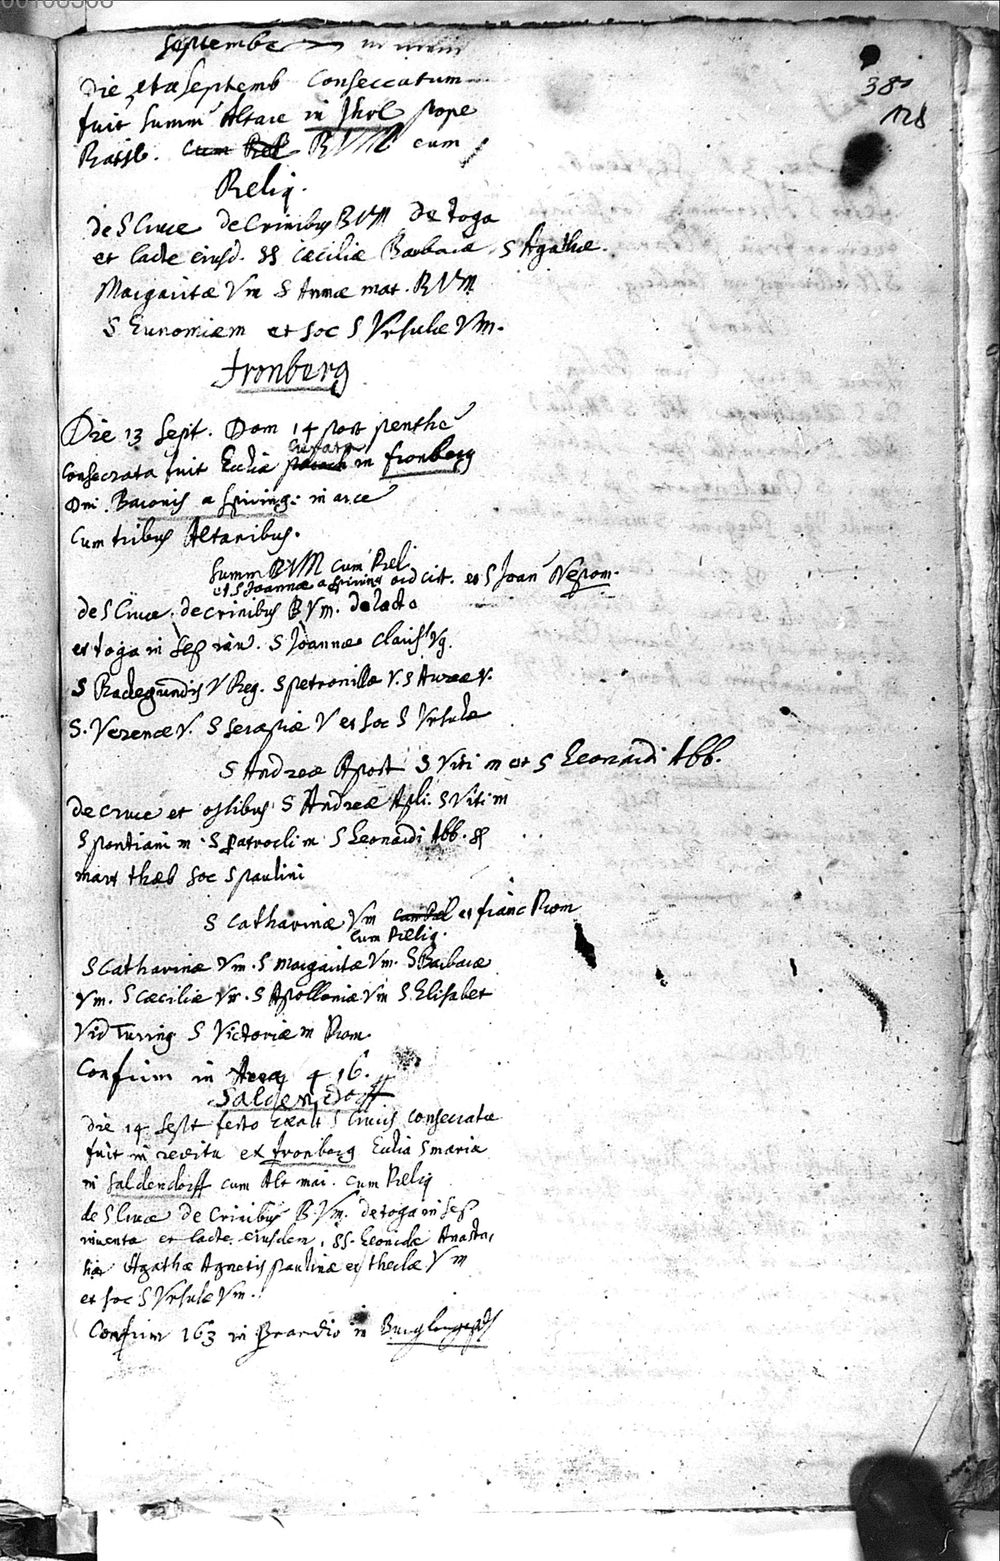 Septembr
Die eta Septemb Conseccatum
fuit Summ Altare in Thol prope
Ratisb. cum Rel BVM cum
Reliq.
de S Cruce de Crinibus BVM de toga
et lacte eiusd. SS Cæciliæ Barbaræ S Agathæ.
Margaritæ Vm S Annæ mat. BVM
S Eunomiæ m et Soc S Ursulæ Vm.
Fronberg
Die 13 Sept. Dom 14 post penthe
Consecrata fuit Ecclia curata in Fronberg
Dni Baronis a Spiring: in arce
Cum tribus Altaribus.
Summ BVM cum Reli
et S Joannæ a ord cist. et S Joan Nepom.
de S Cruce de crinibus B Vm. de lacte
et toga in Sep inv. S Joannæ Vg.
S Radegundis V Reg. S petronillæ V. S Aureæ V.
S. Verenæ V. S Serapiæ V et Soc S Ursulæ
S Andreæ Apost S Viti m et S Leonardi Abb.
de cruce et ossibus S Andreæ Apli. S Viti m
S pontiani m. S patrocli m S Leonardi Abb. SS
mart thæb Soc S paulini
S Catharinæ Vm Cum Rel et franc Rom
cum Reliq.
S Catharinæ Vm. S Margaritæ Vm. S Barbaræ
Vm. S Cæciliæ Vm. S Apolloniæ Vm S Elisabet
Vid Turing S Victoriæ m Rom
Confirm in Arce 416.
Saldendorff
Die 14 Sept festo Exalt S Crucis consecrata
fuit in reditu ex Fronberg Ecclia S Mariæ
in Saldendorff cum Alt mai. cum Reliq
de S Cruce de Crinibus B. Vm. de toga in Sep
inventa et lacte eiusdem. SS. Leonidæ Anasta,
siæ Agathæ Agnetis paulinæ et theclæ V m
et Soc S Ursulæ Vm.
Confirm 163 in prandio in Burglengefeldt
380
128